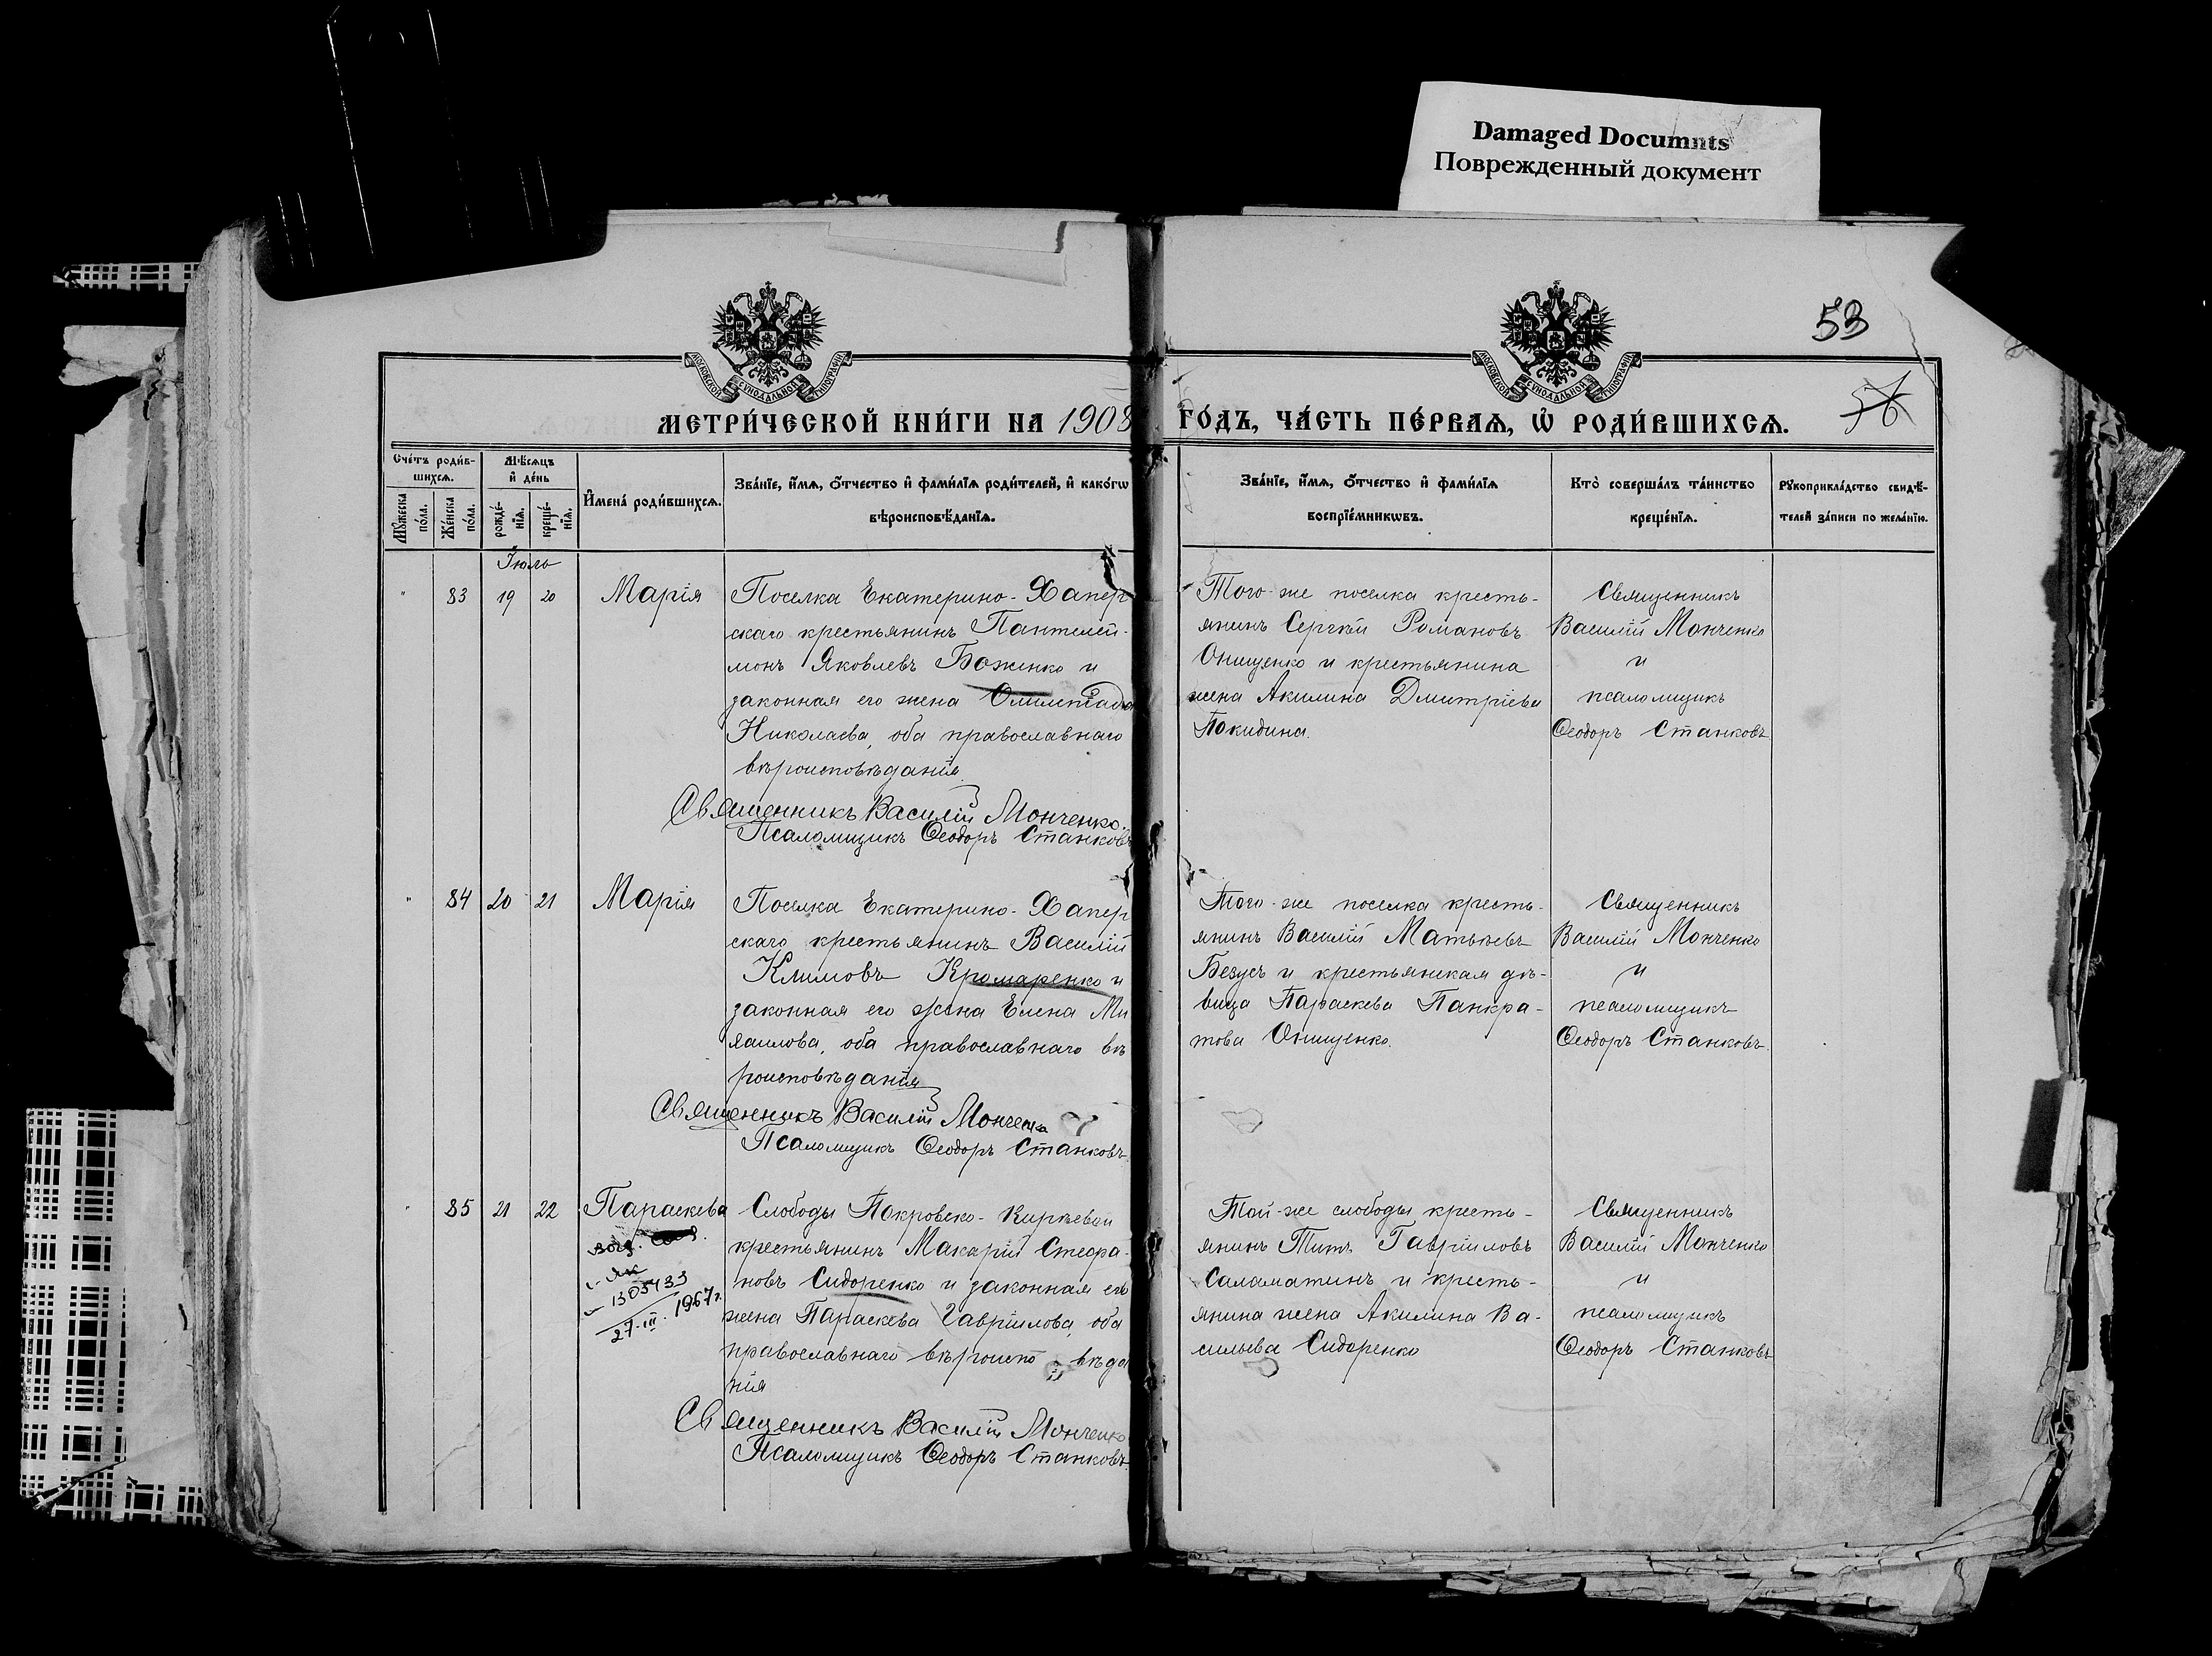 Damaged Documnts
Поврежденный документ
53
56
МОСКОВСКОЙ СѴНОДАЛЬНОЙ ТИПОГРАФІИ
МОСКОВСКОЙ СѴНОДАЛЬНОЙ ТИПОГРАФІИ
МЕТРИ́ЧЕСКОЙ КНИ́ГИ НА 1908
ГО́ДЪ, ЧА́СТЬ ПЕ́РВАѦ, Ѡ҆ РОДИ́ВШИХСѦ.
Сче́тъ роди́в-
шихсѧ.
Мꙋ́жеска по́ла.
Же́нска по́ла.
Мѣ́сѧцъ
и҆ де́нь
рожде́-
нїѧ.
креще́-
нїѧ.
И҆мена́ роди́вшихсѧ.
Зва́нїе, и҆́мѧ, ѻ҆́тчество и҆ фами́лїѧ роди́телей, и҆ како́гѡ
вѣроисповѣ́данїѧ.
Зва́нїе, и҆́мѧ, ѻ҆́тчество и҆ фами́лїѧ
воспрїе́мникѡвъ.
Кто̀ соверша́лъ та́инство
креще́нїѧ.
Рꙋкоприкла́дство свидѣ́-
телей за́писи по жела́нїю.
Іюль
" 83 19 20 Марія
Поселка Екатерино-Хапер
скаго крестьянинъ Пантелей-
монъ Яковлевъ Боженко и
законная его жена Олимпіада
Николаева, оба православнаго
вѣроисповѣданія.
Священникъ Василій Мончен­ко.
Псаломщикъ Ѳеодоръ Станковъ
Того-же поселка кресть-
янинъ Сергѣй Романовъ
Онищенко и крестьянина
жена Акилина Дмитріева
Покидина.
Священникъ
Василій Монченко
и
псаломщикъ
Ѳеодоръ Станковъ
" 84 20 21 Марія
Поселка Екатерино-Хапер
скаго крестьянинъ Василій
Климовъ Крамаренко и
законная его жена Елена Ми
хаилова, оба православнаго вѣ
роисповѣданія
Священникъ Василій Монченко
Псаломщикъ Ѳеодоръ Станковъ.
Того-же поселка кресть-
янинъ Василій Матвѣевъ
Безусъ и крестьянская дѣ-
вица Параскева Панкра-
това Онищенко.
Священникъ
Василій Монченко
и
псаломщикъ
Ѳеодоръ Станковъ.
" 85 21 22 Параскева
1305433
27-III.1967г.
Слободы Покровско-Кирѣевой
крестьянинъ Макарій Стефа-
новъ Сидоренко и законная его
жена Параскева Гавріилова, оба
православнаго вѣроиспо вѣда
нія
Священникъ Василій Монченко
Псаломщикъ Ѳеодоръ Станковъ.
Той-же слободы кресть-
янинъ Титъ Гавріиловъ
Саламатинъ и кресть-
янина жена Акилина Ва-
сильева Сидоренко
Священникъ
Василій Монченко
и
псаломщикъ
Ѳеодоръ Станковъ